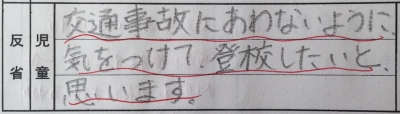 児童反省
交通事故にあわないように、
気をつけて、登校したいと、
思います。